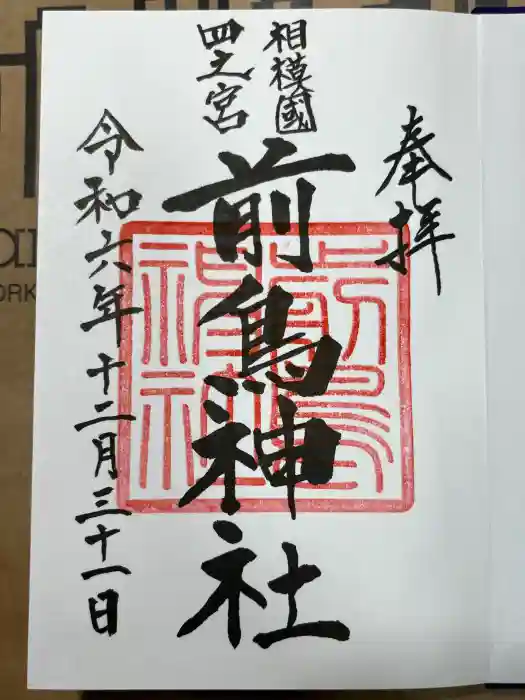 奉拝
相模國
四之宮
前鳥神社
前鳥神社
令和六年十二月三十一日